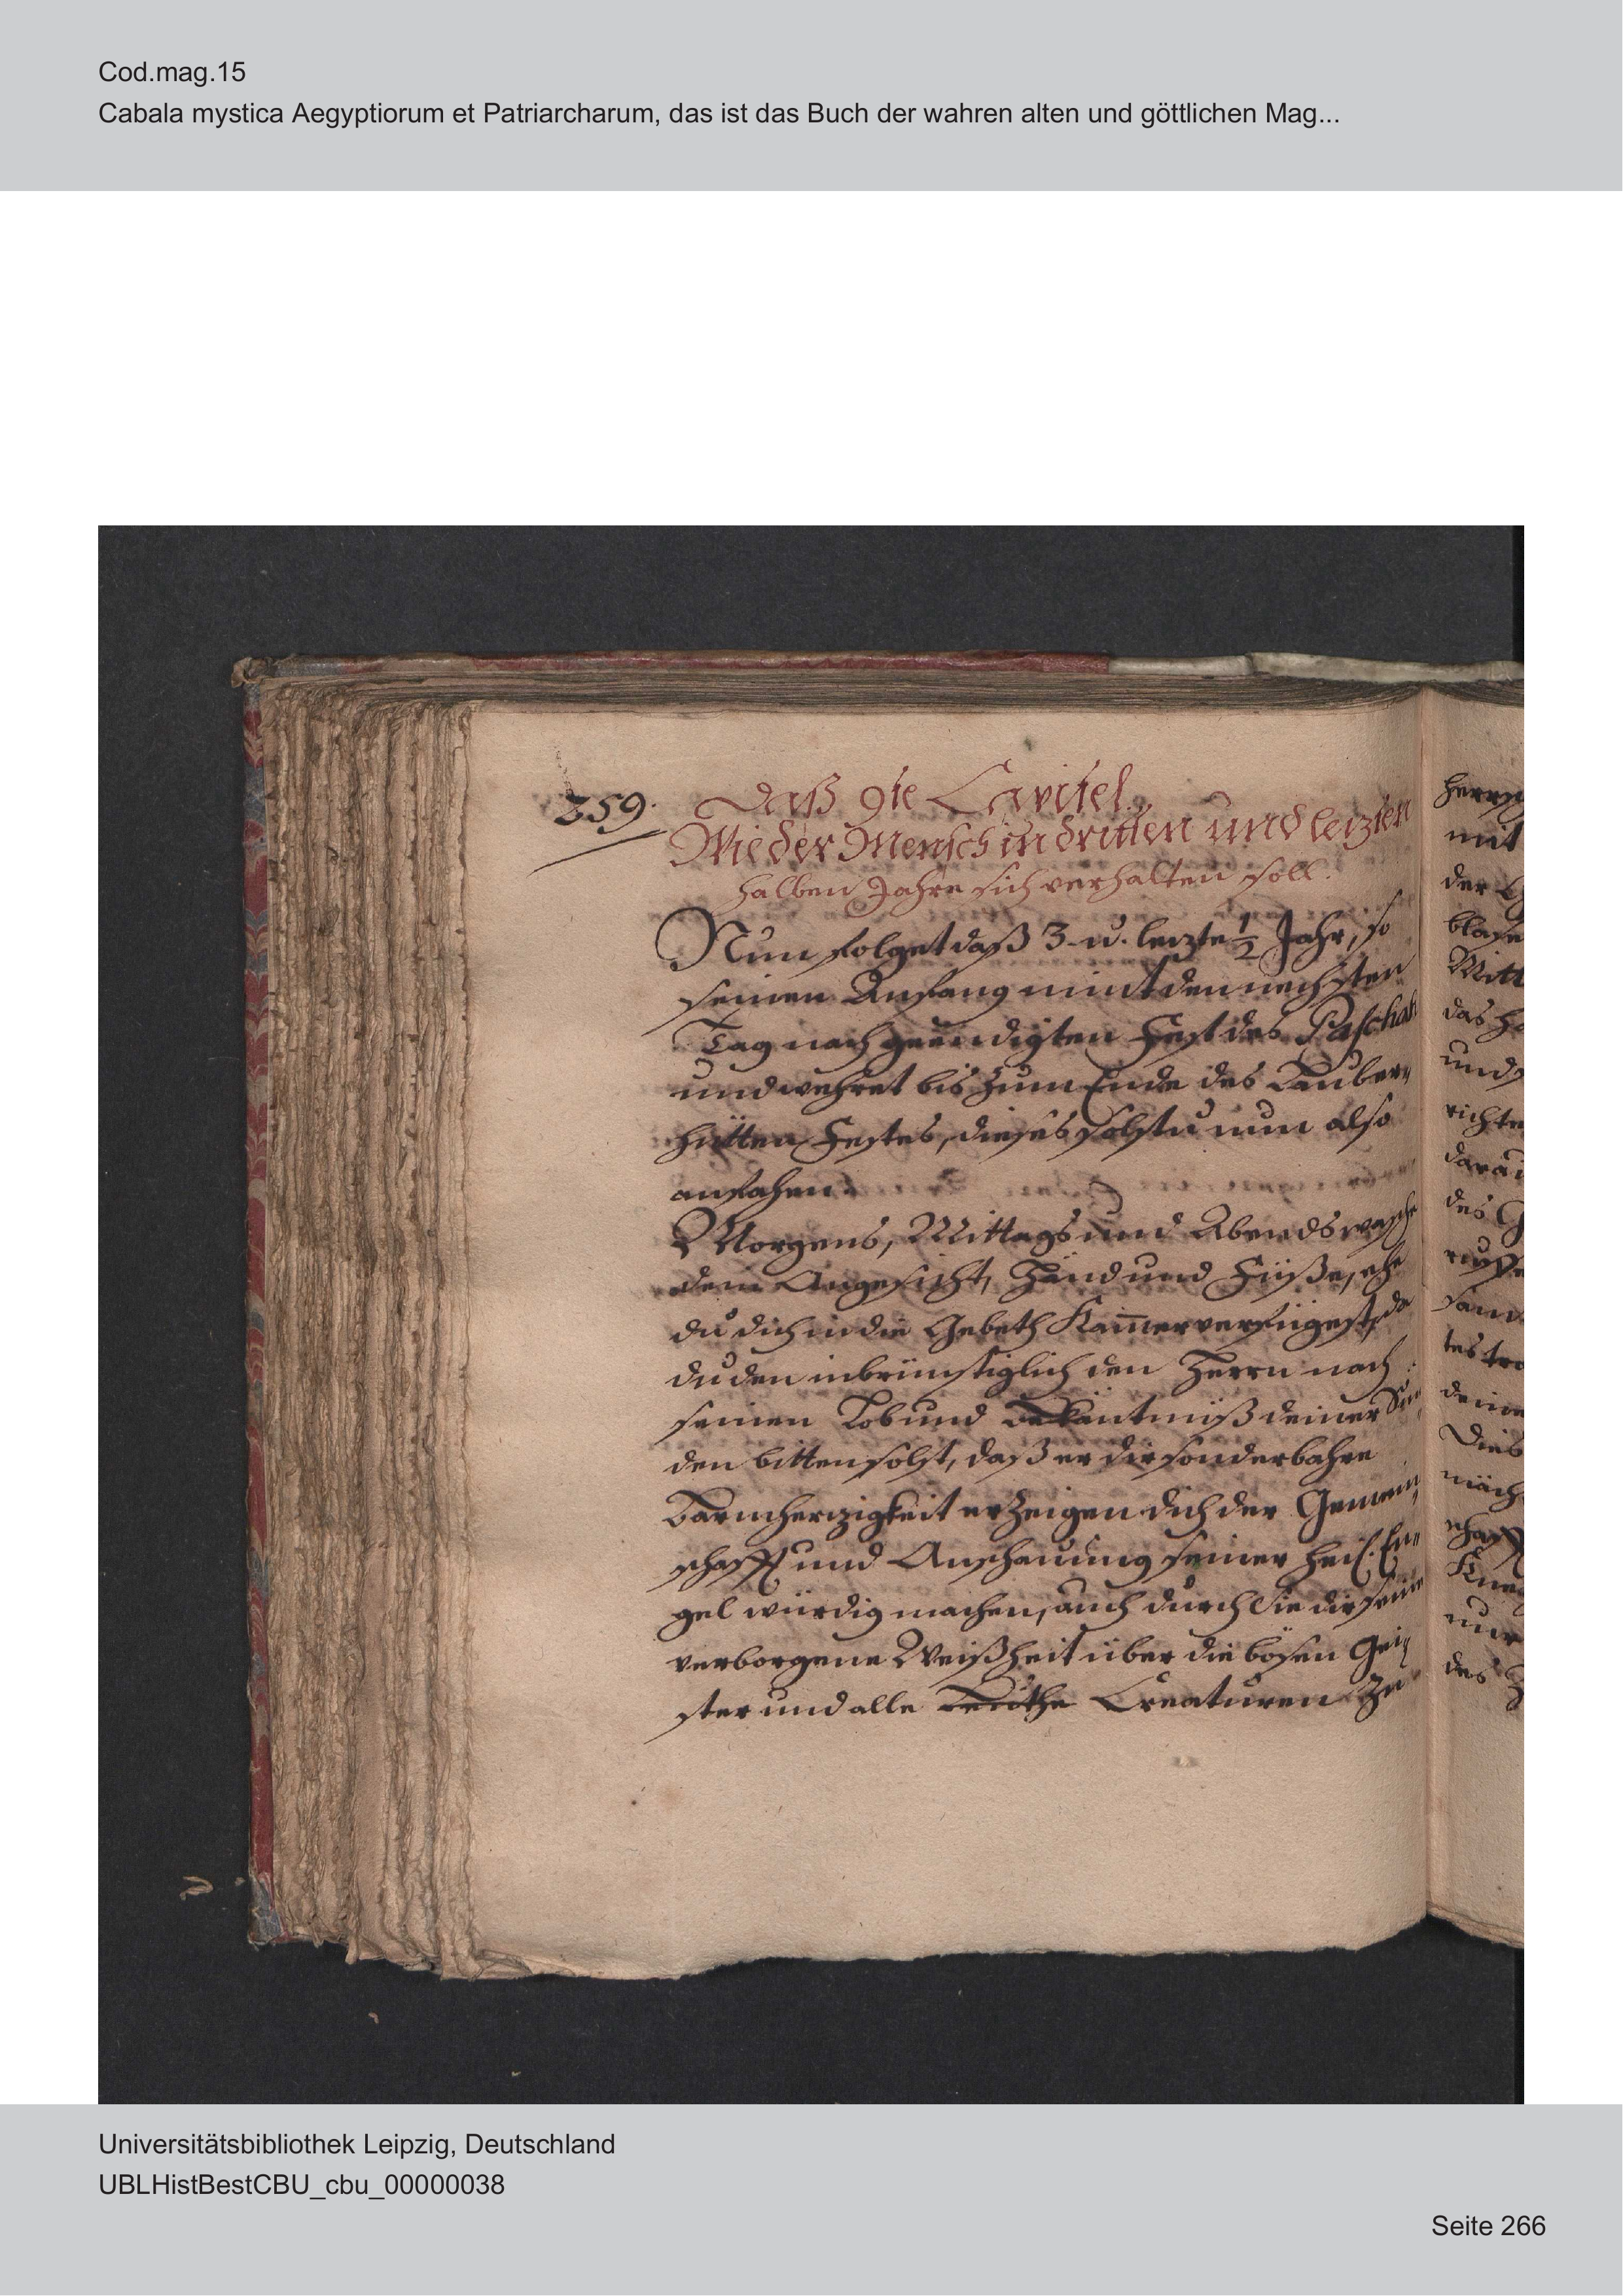 Cod.mag.15
Cabala mystica Aegyptiorum et Patriarcharum, das ist das Buch der wahren alten und göttlichen Mag...
259.
Daß 9te Capitel.
Wie der Mensch in dritten und leizten
halben Jahre sich verhalten soll.
Nun folget daß 3. u. leizte 1/2 Jahr, so
seinen Anfang nimt den nechsten
Tag nach geendigten Fest des Paschah
und wehret bis zum Ende des Lauber,
hütten Festes, dieses solstu nun also
anfahen.
Morgens, Mittags und Abends wasche
dein Angesicht, Händ und Füße, ehe
du dich in die Gebeth Kam̄er verfügest, da
du den inbrünstiglich den Herrn nach
seinen Lob und Bekäntnüß deiner Sün,
den bitten solst, daß er dir sonderbahre
Barmherzigkeit erzeigen dich der Gemein,
schafft und Anschauung seiner heil. En,
gel würdig machen, auch durch Sie dir seine
verborgene Weißheit über die bösen Gei,
ster und alle Creaturen zu
herrs
mit
der
blase
Mitt
das
und
richte
darau
des G
ruffe
tes tro
deine
Dies
mäch
schafft
nur
des
Universitätsbibliothek Leipzig, Deutschland
UBLHistBestCBU_cbu_00000038
Seite 266